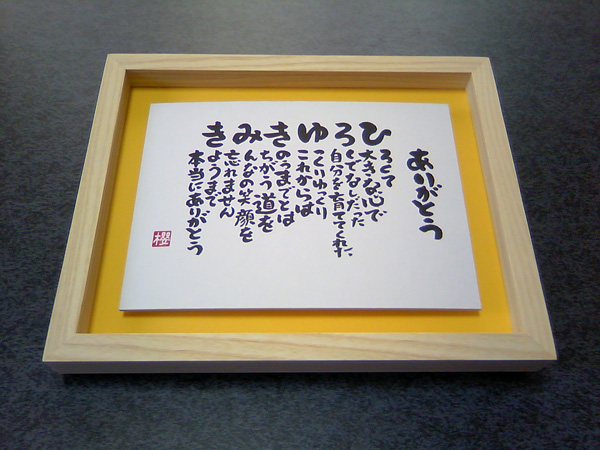 ありがとう
ひろくて
大きな心で
ろくでなしだった
自分を育ててくれた、
ゆっくりゆっくり
これからは
きのうまでとは
ちがう道を
みんなの笑顔を
忘れません
きょうまで
本当にありがとう
櫻